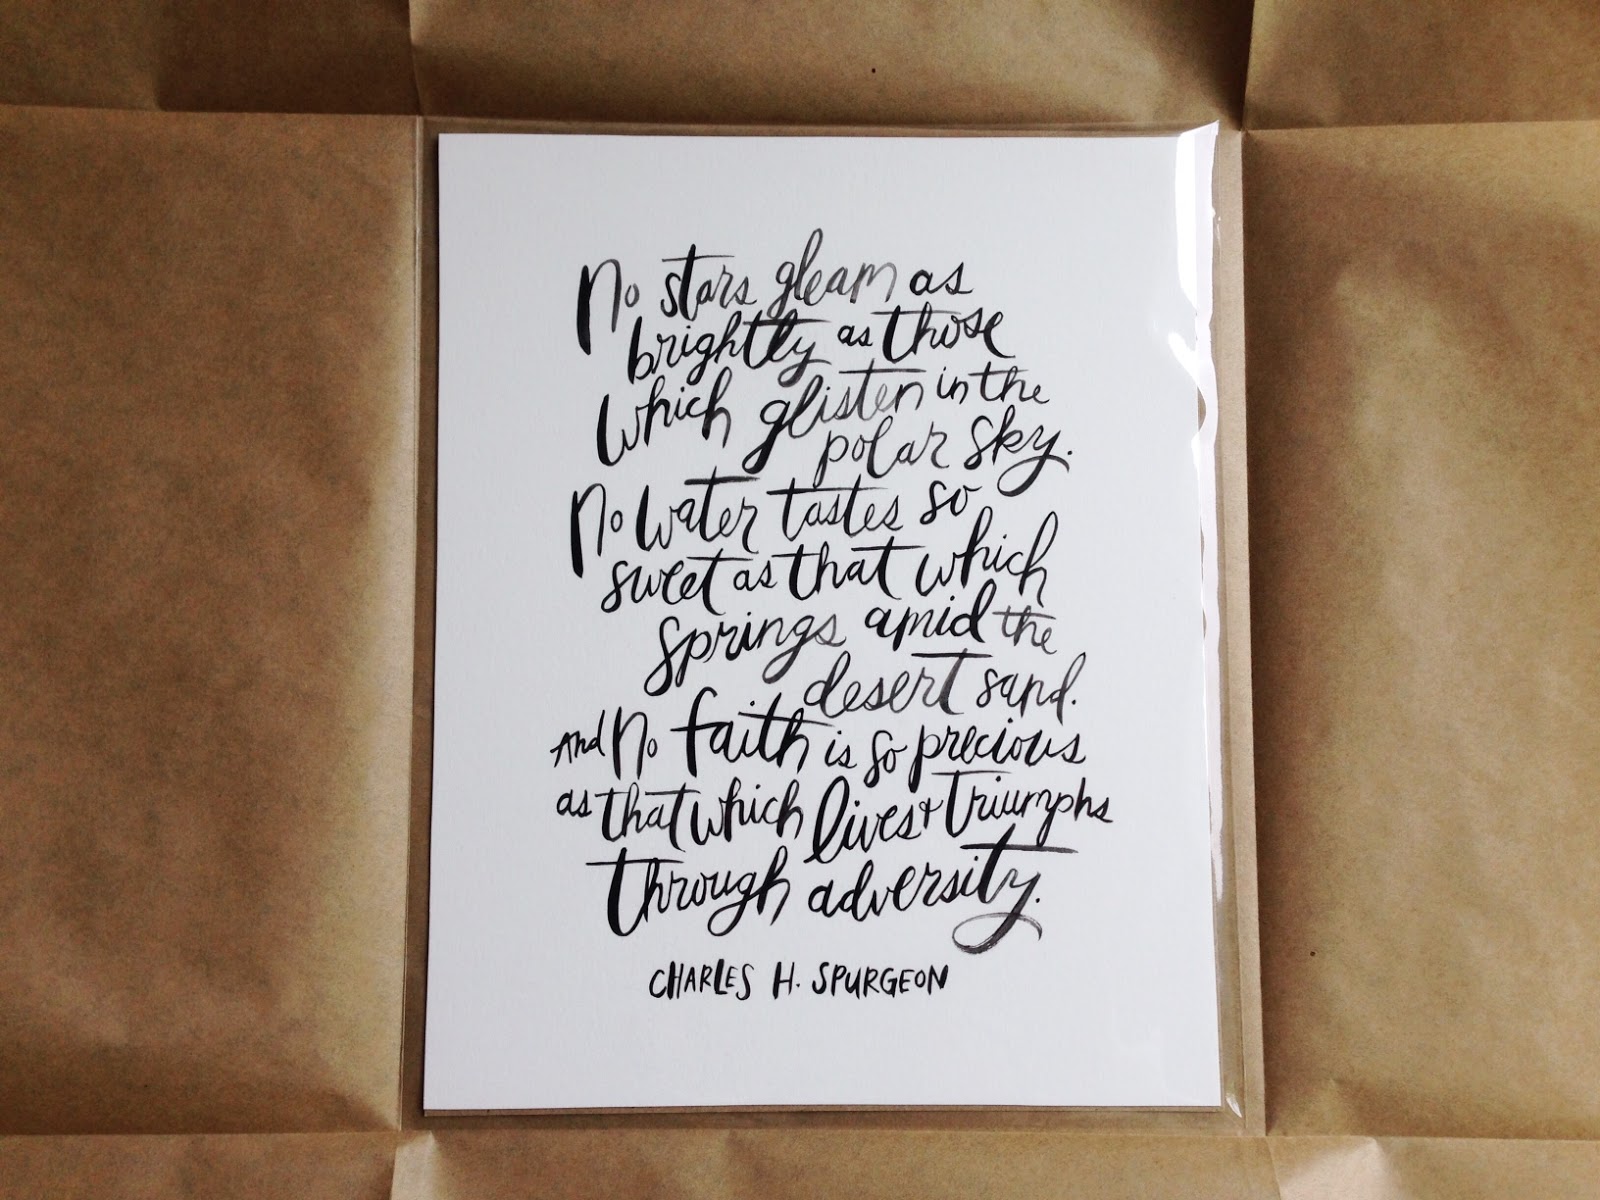 No stars gleam as
brightly as those
which glisten in the
polar sky.
No water tastes so
sweet as that which
springs amid the
desert sand.
And no faith is so precious
as that which lives + triumphs
through adversity.
CHARLES H. SPURGEON